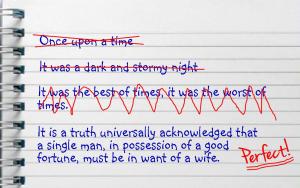 Once upon a time
It was a dark and stormy night
It was the best of times, it was the worst of
times.
It is a truth universally acknowledged that
a single man, in possession of a good
fortune, must be in want of a wife.
Perfect!